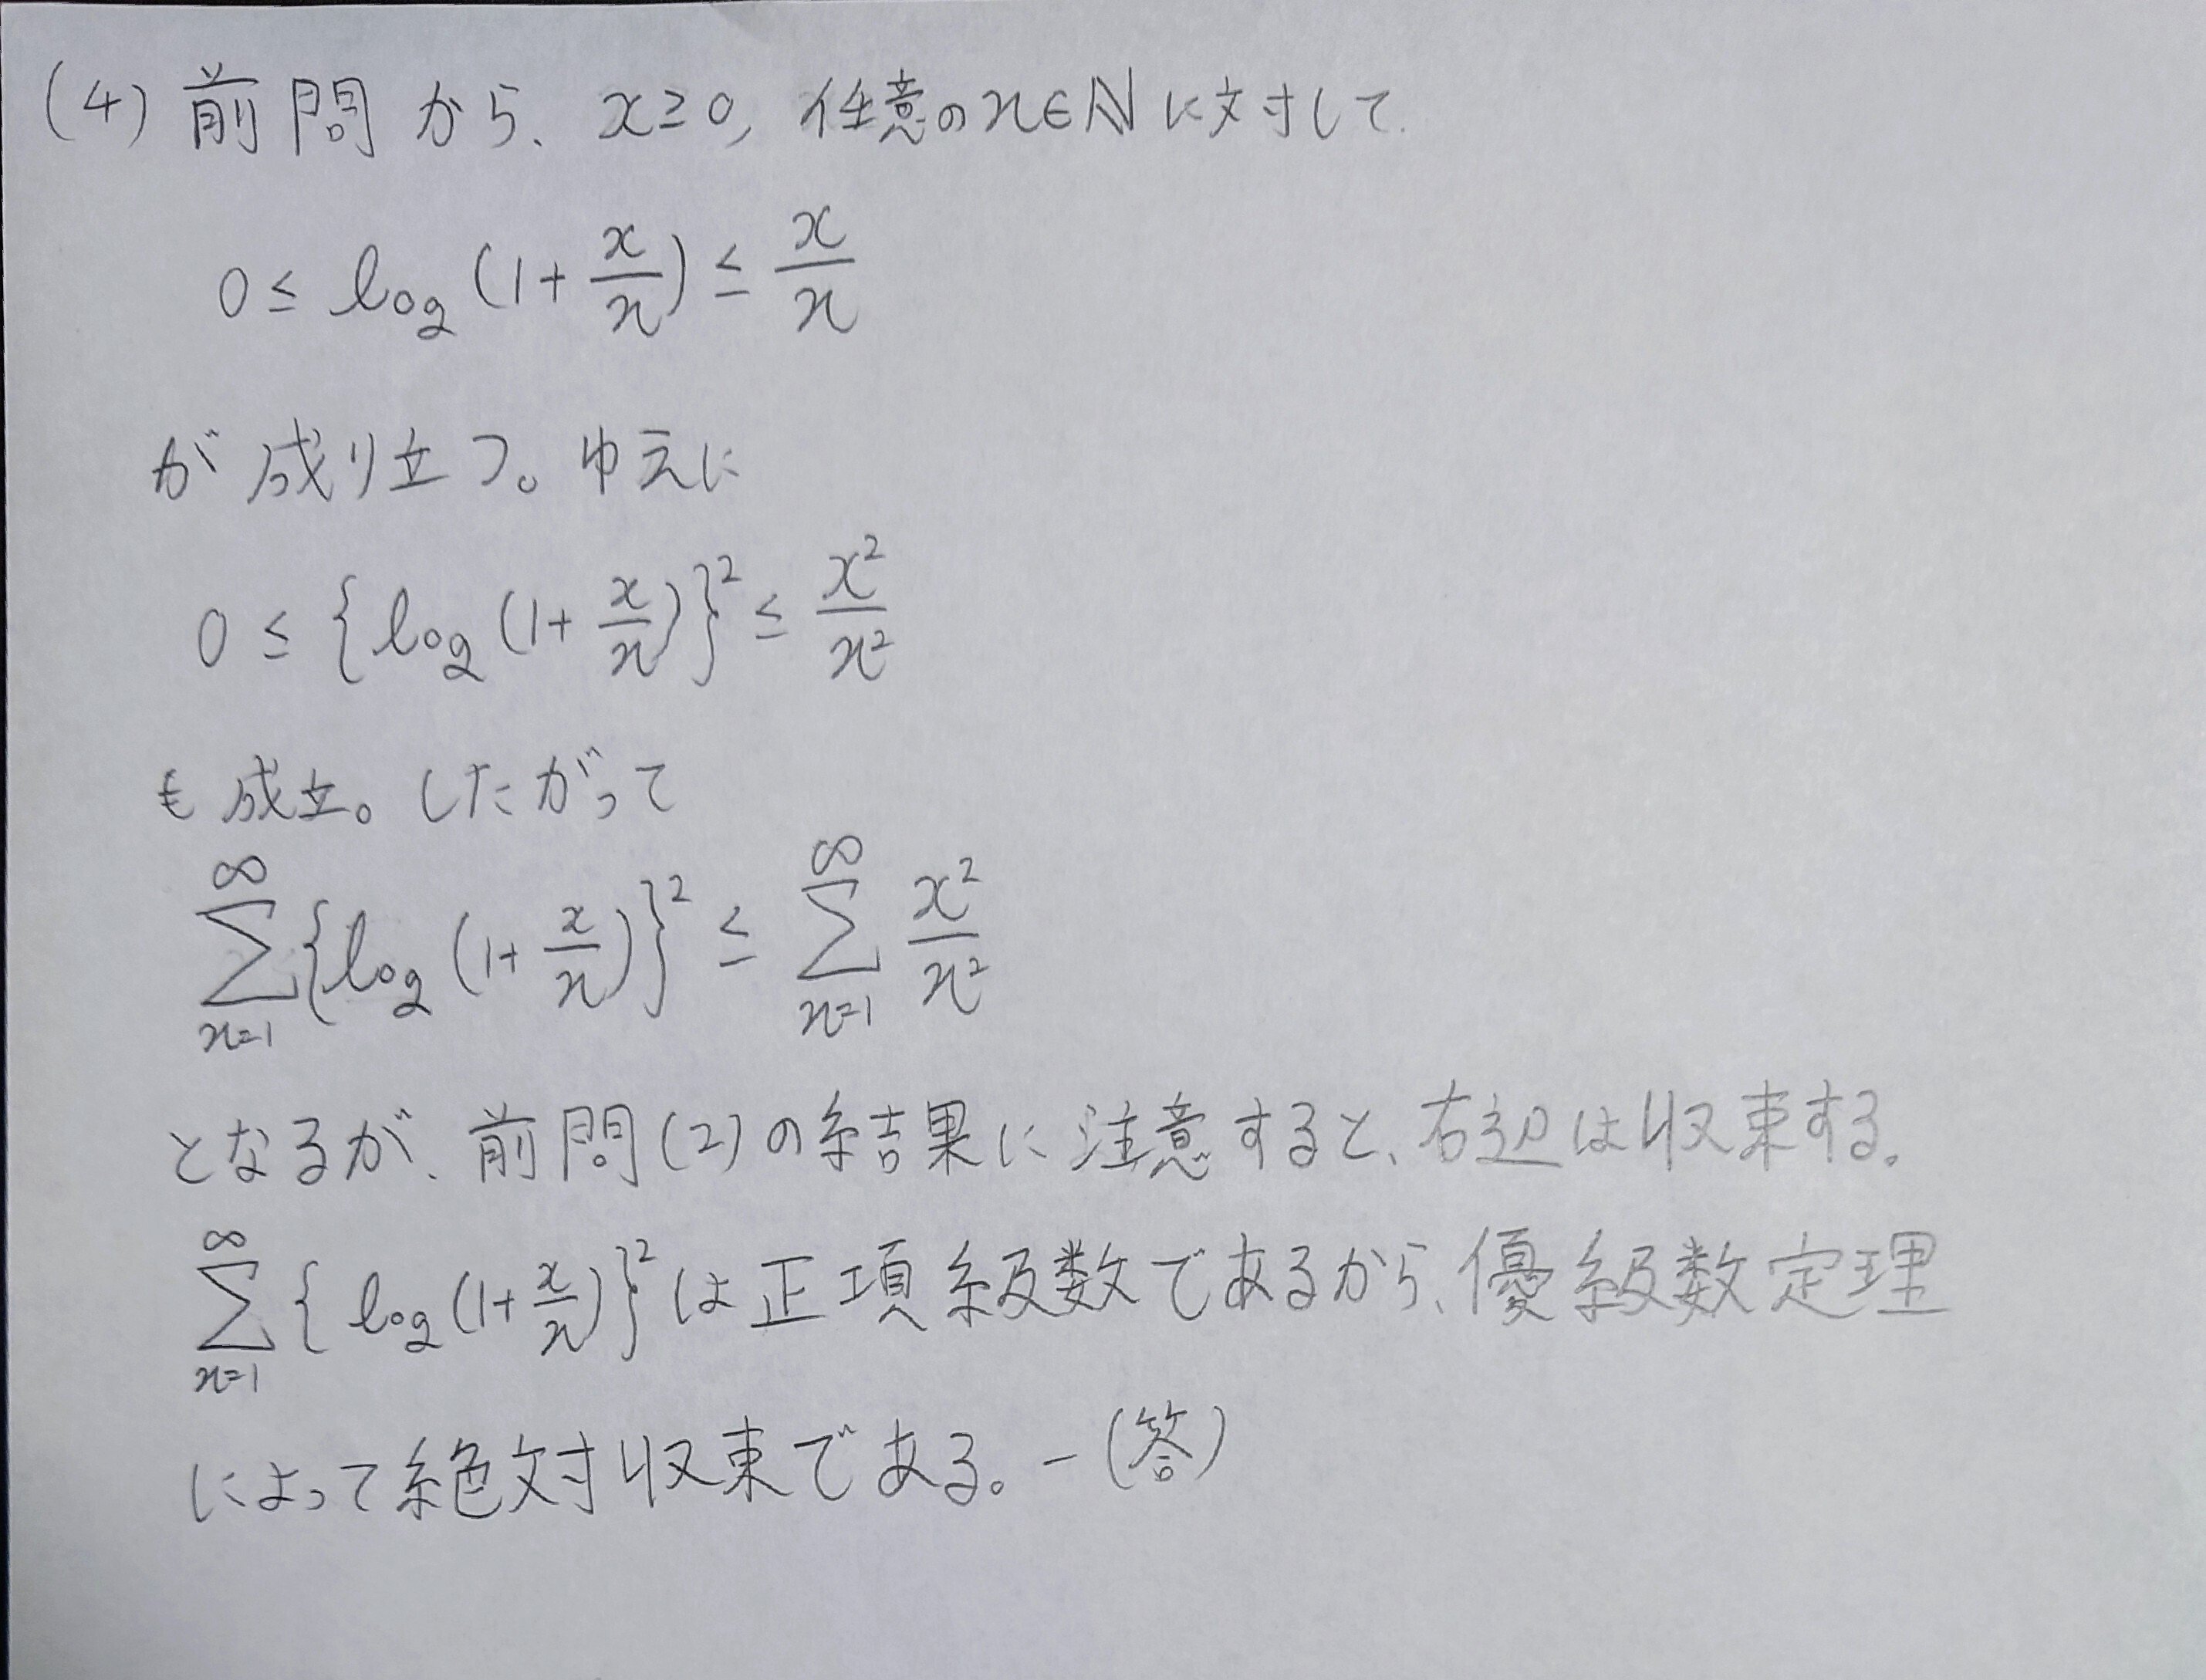 (4) 前問から、x≥0, 任意のn∈ℕに対して
0 ≤ log(1+x/n) ≤ x/n
が成り立つ。ゆえに
0 ≤ {log(1+x/n)}² ≤ x²/n²
も成立。したがって
∑_{n=1}^{∞} {log(1+x/n)}² ≤ ∑_{n=1}^{∞} x²/n²
となるが、前問(2)の結果に注意すると、右辺は収束する。
∑_{n=1}^{∞} {log(1+x/n)}² は正項級数であるから、優級数定理
によって絶対収束である。—(答)